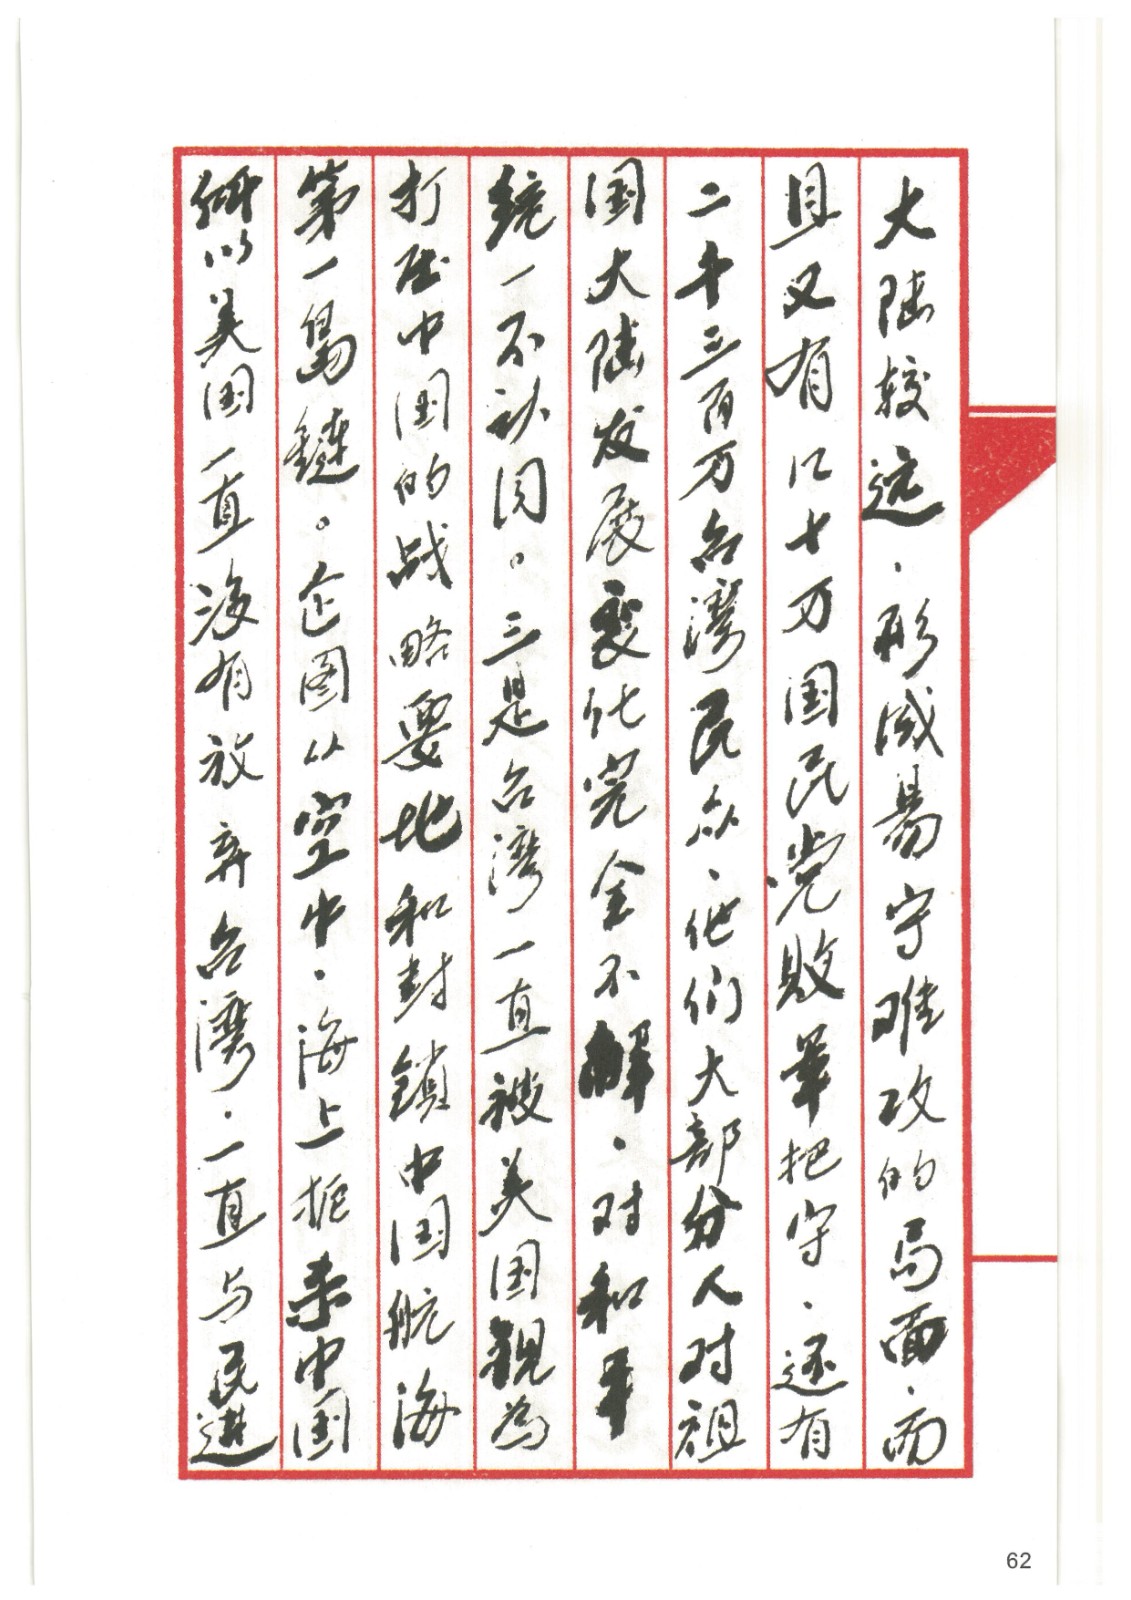 大陆较远、形成易守难攻的局面、而
且又有几十万国民党败军把守、还有
二千三百万台湾民众、他们大部分人对祖
国大陆发展变化完全不了解、对和平
统一不认同。三是台湾一直被美国视为
打压中国的战略要地和封锁中国航海
第一岛链。企图从空中、海上扼杀中国
所以美国一直没有放弃台湾、一直与民进
62